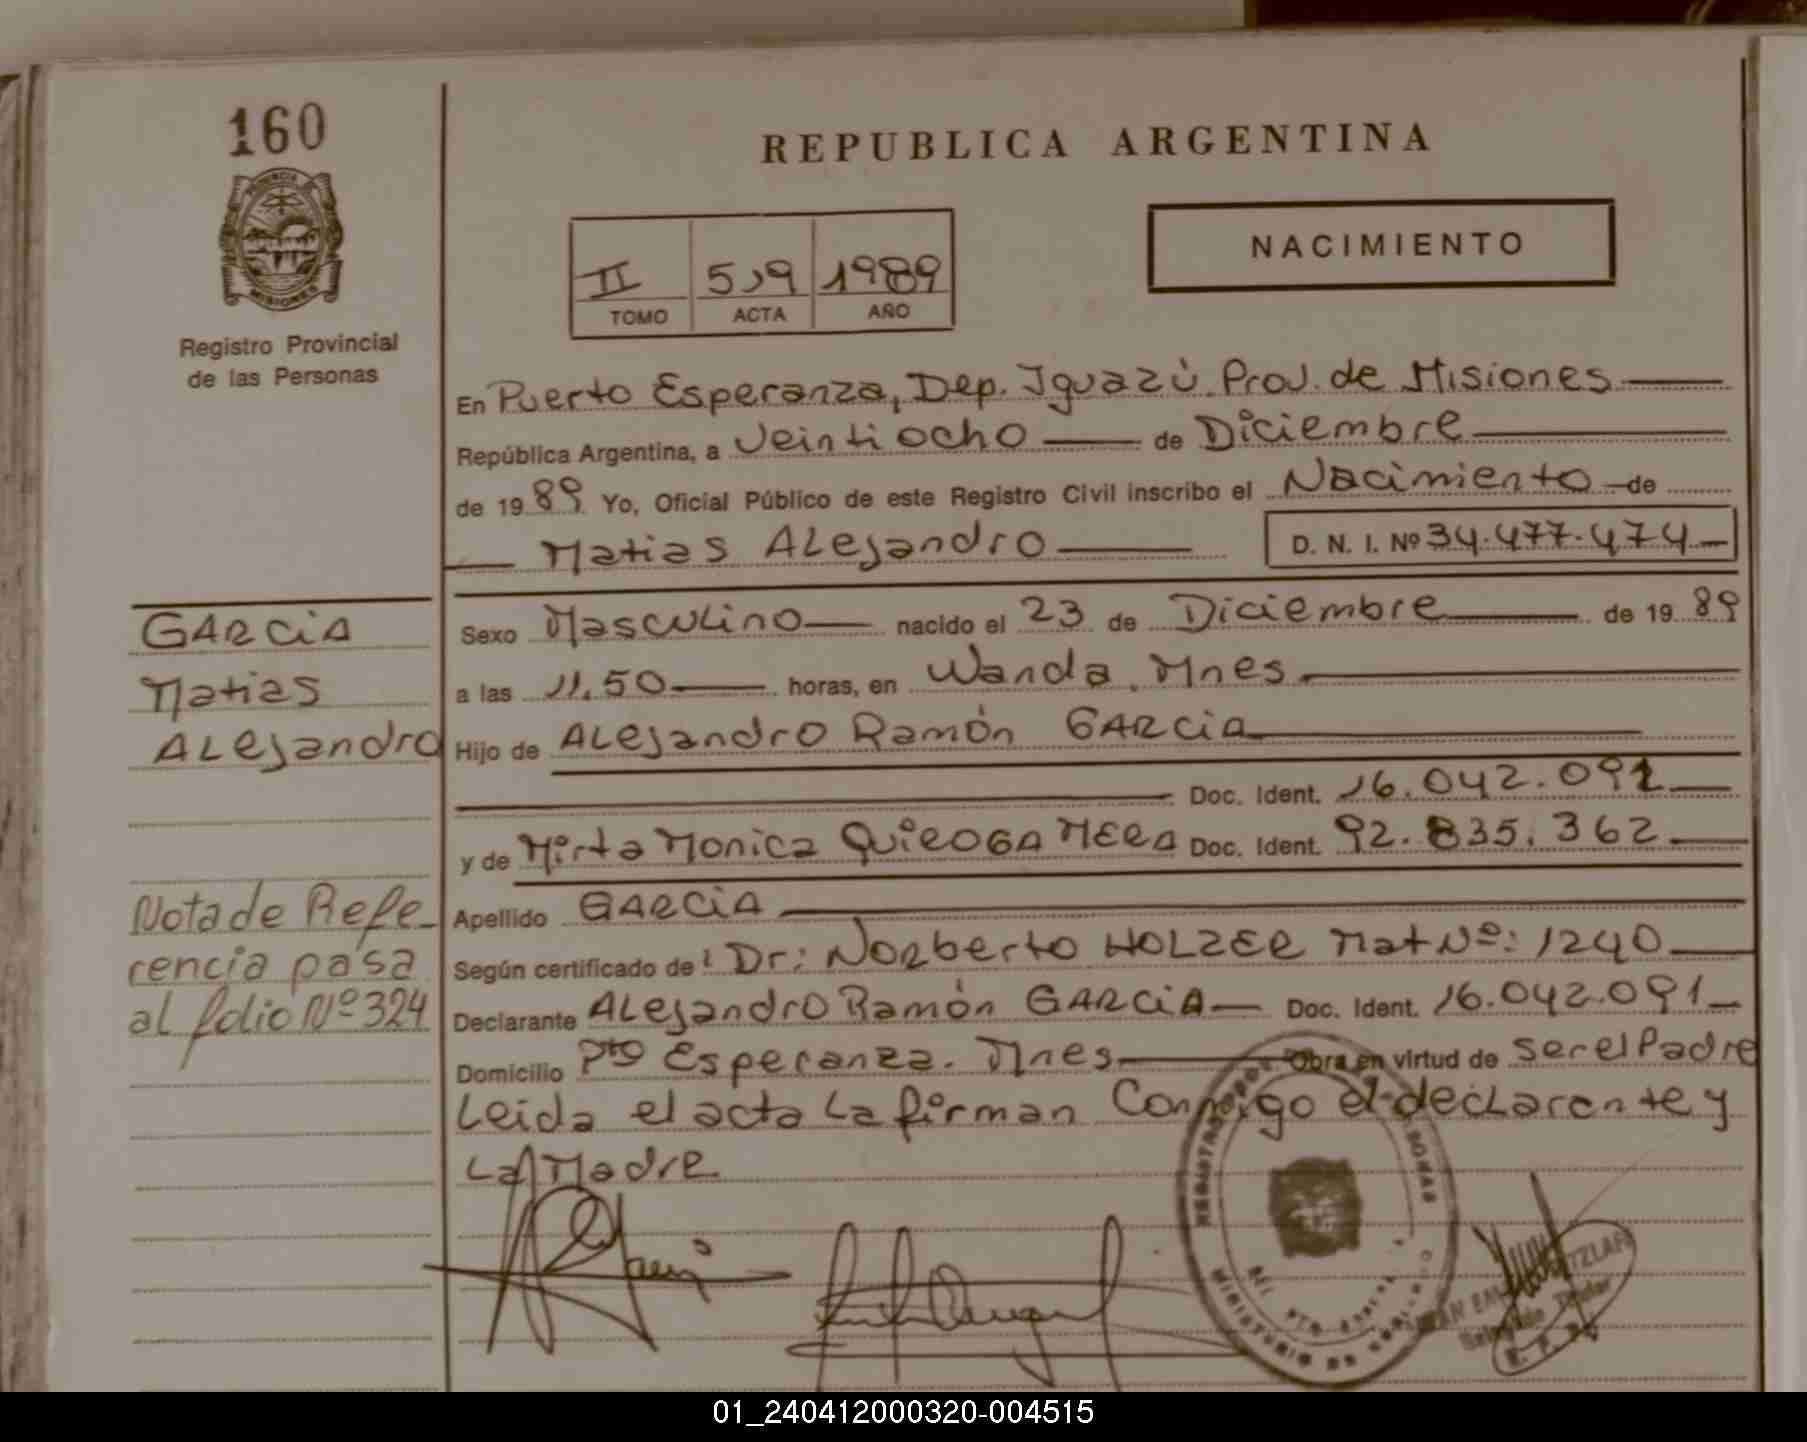 160
PROVINCIA DE
MISIONES
Registro Provincial
de las Personas
REPUBLICA ARGENTINA
NACIMIENTO
II 519 1989
TOMO ACTA AÑO
En Puerto Esperanza, Dep. Iguazú. Prov. de Misiones
República Argentina, a Veintiocho de Diciembre
de 1989 Yo, Oficial Público de este Registro Civil inscribo el Nacimiento de
Matias Alejandro D. N. I. Nº 34.477.474
Sexo Masculino nacido el 23 de Diciembre de 1989
a las 11.50 horas, en Wanda. Mnes.
Hijo de Alejandro Ramón GARCiA
Doc. Ident. 16.042.091
y de Mirta Monica QuiROGA MERA Doc. Ident. 92.835.362
Apellido GARCiA
Según certificado de: Dr: Norberto HOLZER Mat Nº: 1240
Declarante Alejandro Ramón GARCiA Doc. Ident. 16.042.091
Domicilio Pto Esperanza. Mnes Obra en virtud de ser el Padre
Leida el acta la firman Conmigo el declarante y
La Madre
GARCiA
Matias
Alejandro
Nota de Refe-
rencia pasa
al folio Nº 324
01_240412000320-004515